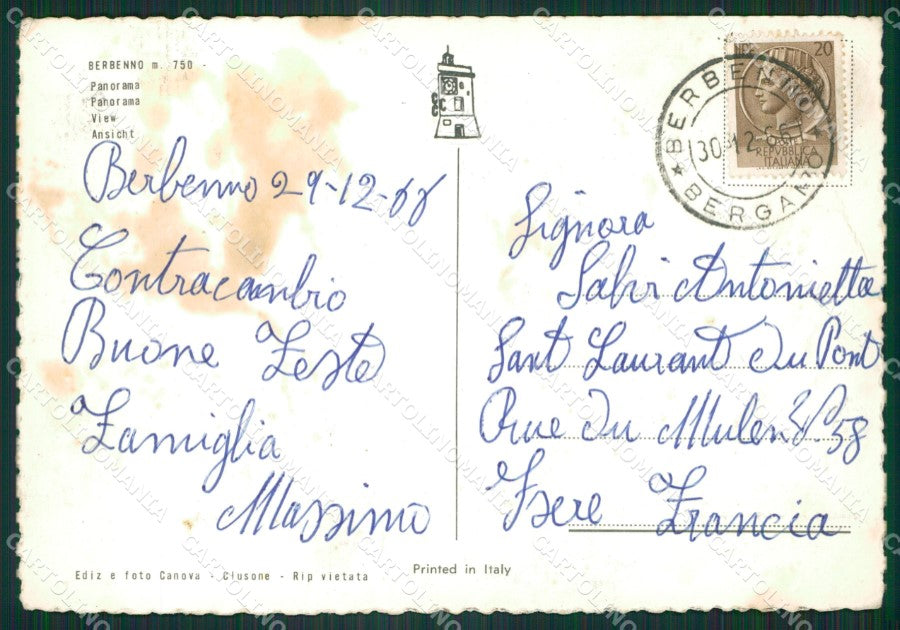 BERBENNO m. 750 -
Panorama
Panorama
View
Ansicht
Berbenno 29-12-66
Contracambio
Buone Feste
Famiglia
Massimo
Ediz e foto Canova - Clusone - Rip vietata
Printed in Italy
20
POSTE
REPVBBLICA
ITALIANA
BERBENNO
30.12.66
BERGAMO
Signora
Salvi Antonietta
Sant Laurant du Pont
Rue du Mulen 58
Isere Francia
CARTOLINOMANIA